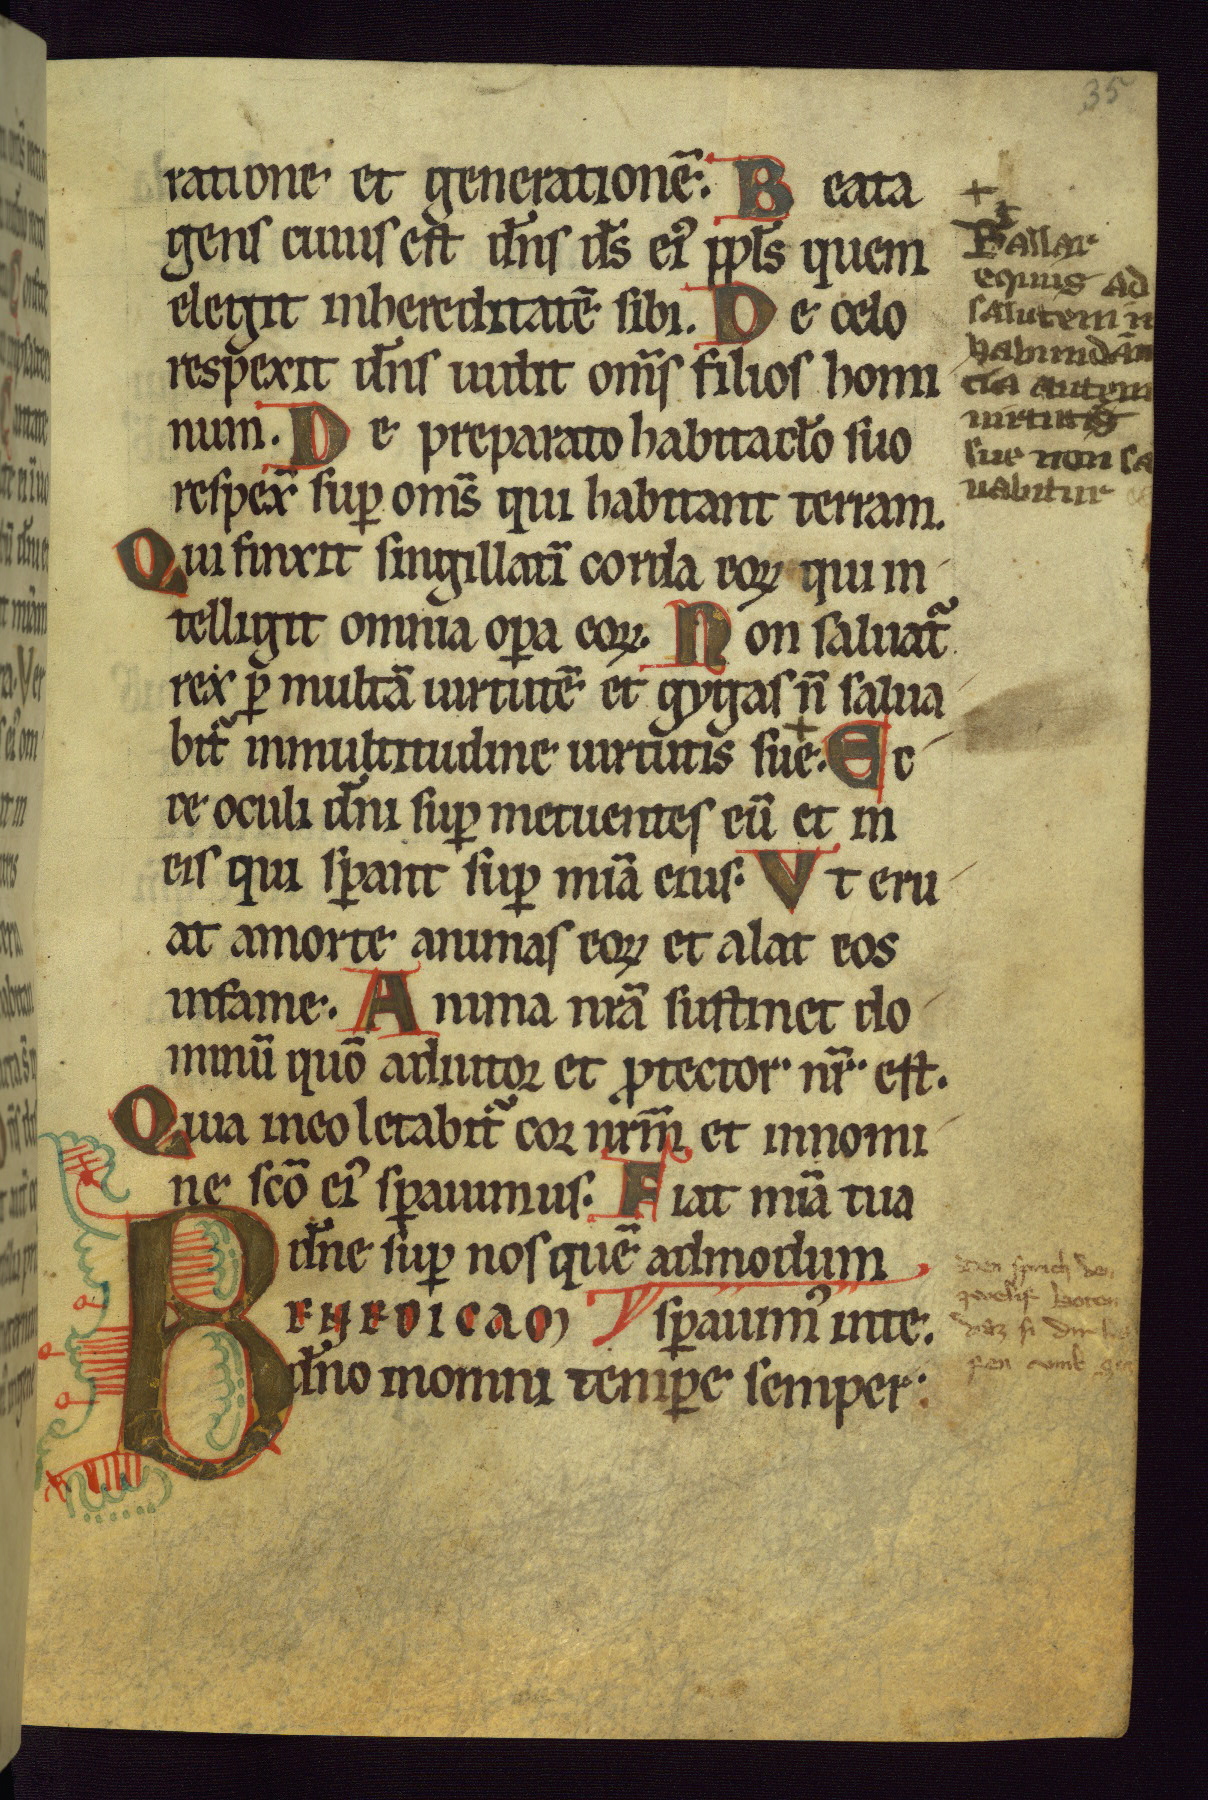 35
ratione et generationē. Beata
gens cuius est dn̄s ds̄ eiꝰ ppl̄s quem
elegit inhereditatē sibi. De celo
respexit dn̄s uidit om̄s filios homi
num. De preparato habitacl̄o suo
respex̄ suꝑ om̄s qui habitant terram.
Qui finxit singillatī corda eoꝝ qui in
telligit omnia oꝑa eoꝝ. Non saluat᷑
rex ꝑ multā uirtutē et gygas n̄ salua
bit᷑ inmultitudine uirtutis sue. Ec
ce oculi dn̄i suꝑ metuentes eū et in
eis qui sꝑant suꝑ mīa eius. Vt eru
at amorte animas eoꝝ et alat eos
infame. Anima nr̄a sustinet do
minū quō adiutor et ꝓtector nr̄ est.
Quia ineo letabit᷑ cor nrm̄ et innomi
ne scō eiꝰ sꝑauimus. Fiat mīa tua
dn̄e suꝑ nos quē admodum
sꝑauimꝰ inte.
BENEDICAM
dn̄o inomni temꝑe semper.
+
Fallax
equus ad
salutem in
habundan
cia autem
uirtutis
sue non sa
uabitur